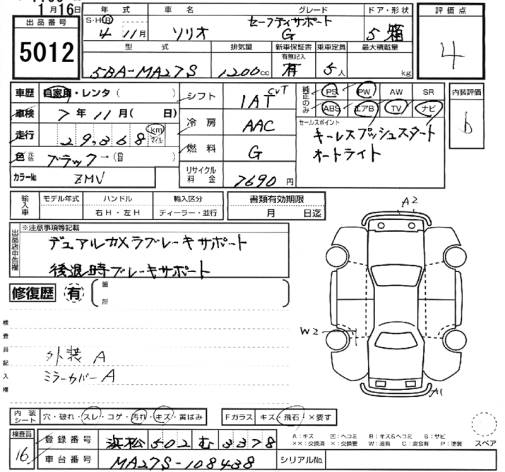 1月16日
出品番号
5012
年式 車名 グレード ドア・形状 評価点
S・H・R
4年11月 ソリオ セーフティサポート G 5 箱
4
型式 排気量 新車保証書 乗車定員 最大積載量
有無記入
5BA-MA27S 1200cc 有 5人 kg
車歴 自家用・レンタ( )
車検 7年11月( 日)
走行 29,368 km マイル
色 ブラック→( )
カラー№ ZMV
シフト 1AT CVT
冷房 AAC
燃料 G
リサイクル料金 7690円
純正のみ PS PW AW SR
ABS エアB TV ナビ
内装評価
b
セールスポイント
キーレスプッシュスタート
オートライト
輸入車 モデル年式 ハンドル 輸入区分 書類有効期限
右H・左H ディーラー・並行 月 日迄
出品店申告欄
※注意事項等記載
デュアルカメラブレーキサポート
後退時ブレーキサポート
修復歴 有 箇所
検査員記入欄
外装 A
ミラーカバー A
A2
W2
A1
内装シート 穴・破れ・スレ・コゲ・汚れ・キズ・黄ばみ Fガラス キズ・飛石・×要す
スペア
検査員
16
登録番号 浜松 502 む 3378
車台番号 MA27S-108438 シリアル№
A:キズ U:ヘコミ B:キズ&ヘコミ S:サビ
××:交換済 ×:交換要 W:波有 C:腐食有 P:塗装